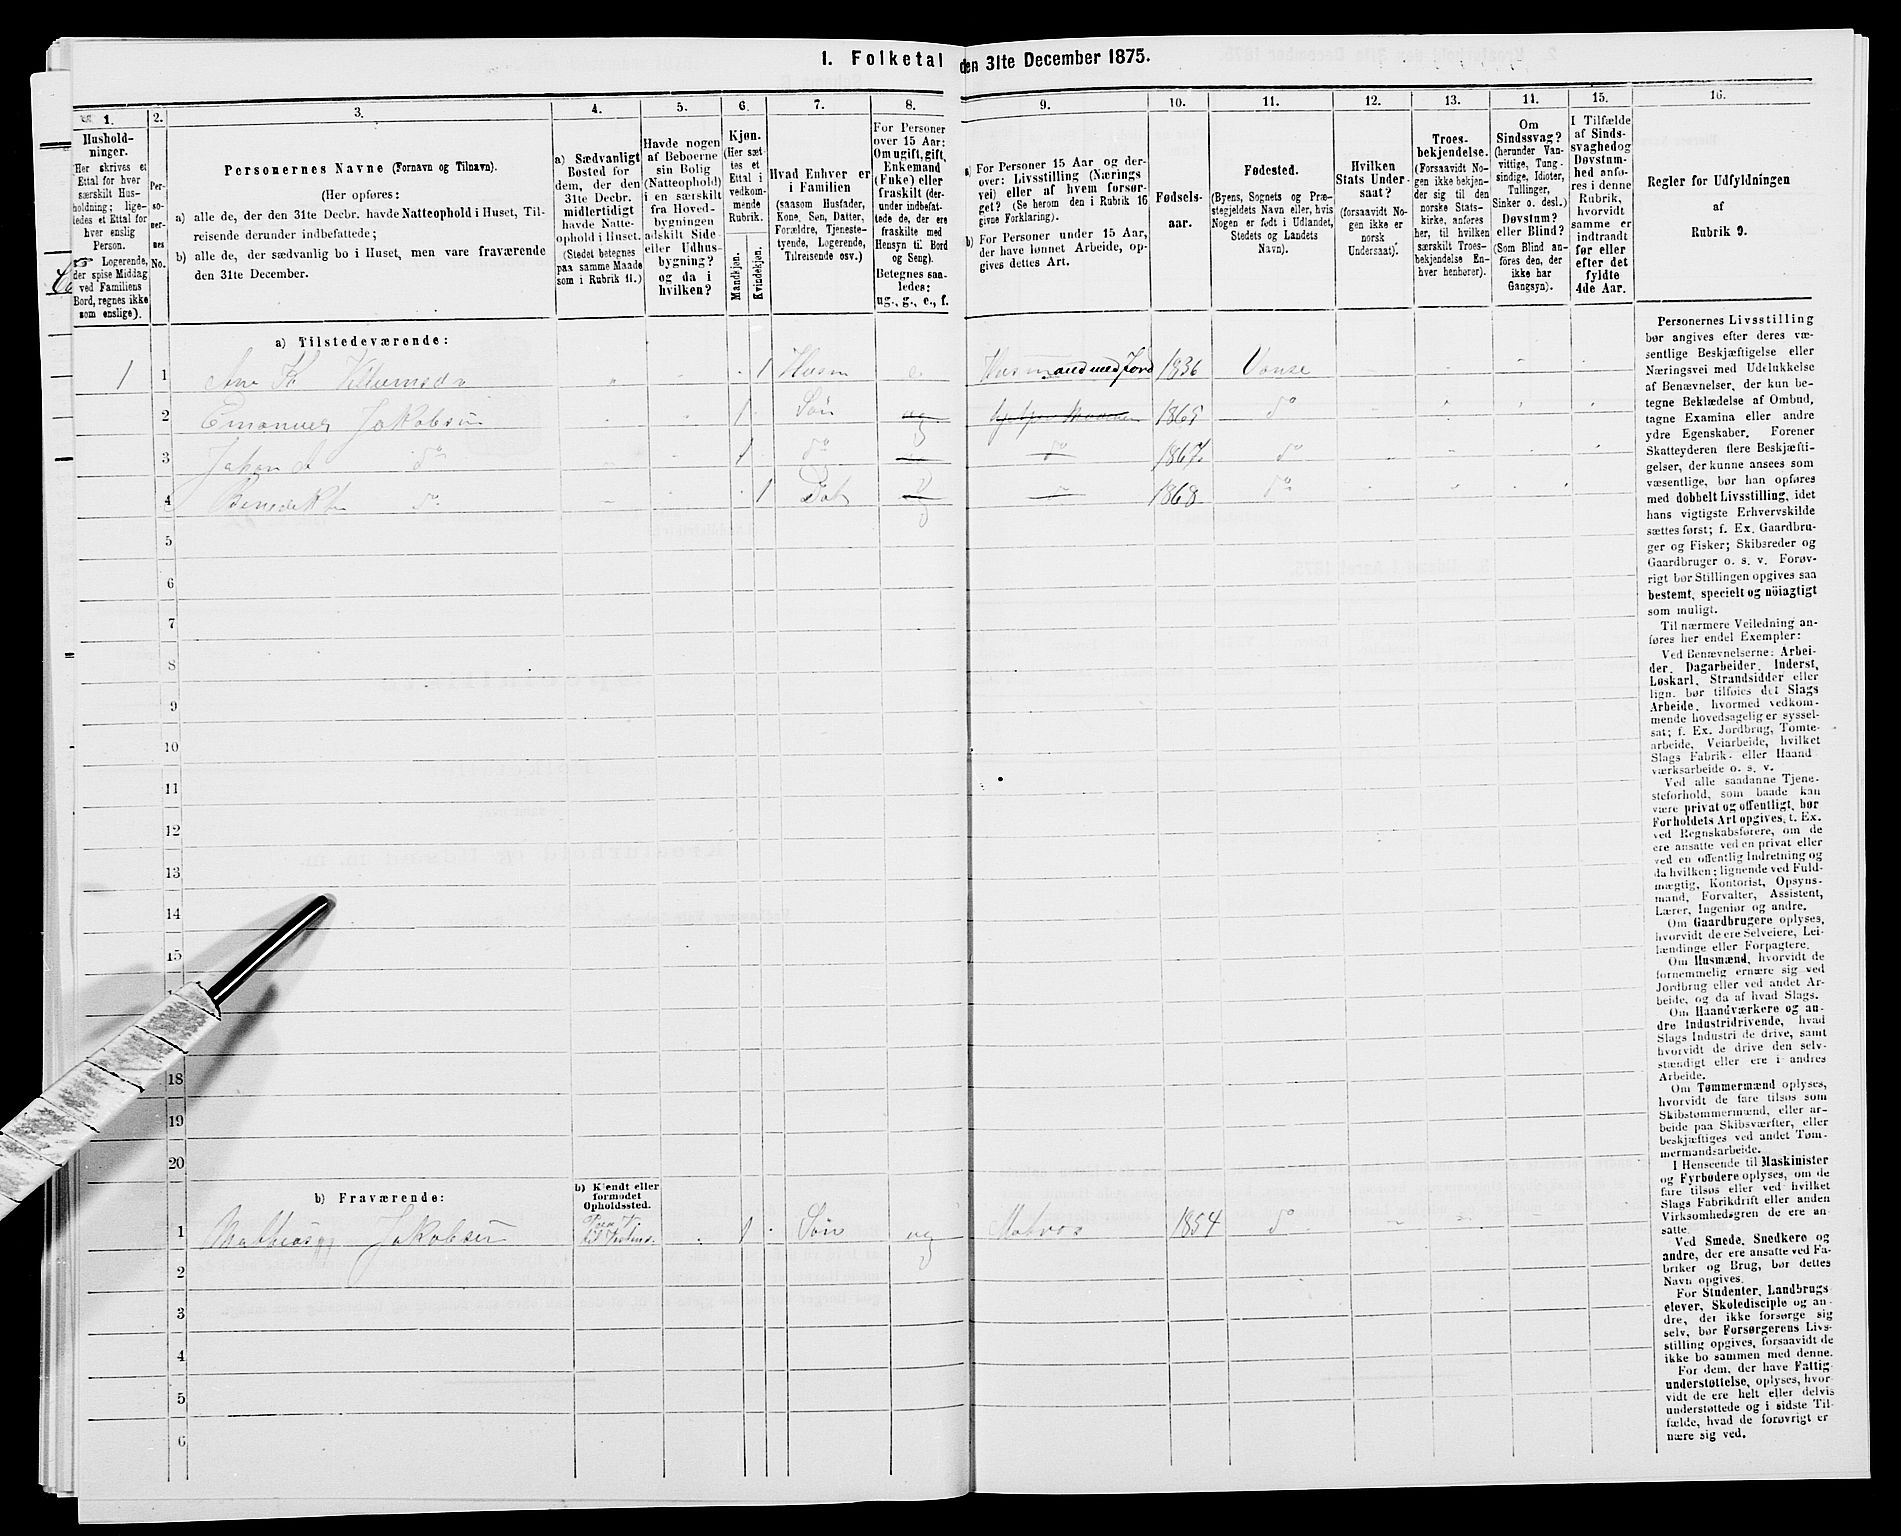 1. Folketal den 31te December 1875.
1.
2.
3.
4.
5.
6.
7.
8.
9.
10.
11.
12.
13.
14.
15.
16.
Hushold-
ninger.
Her skrives et
Ettal for hver
særskilt Hus-
holdning; lige-
ledes et Ettal for
hver enslig
Person.
Logerende,
der spise Middag
ved Familiens
Bord, regnes ikke
som enslige).
Per-
so-
ner-
nes
No.
Personernes Navne (Fornavn og Tilnavn).
(Her opføres:
a) alle de, der den 31te Decbr. havde Natteophold i Huset, Til-
reisende derunder indbefattede;
b) alle de, der sædvanlig bo i Huset, men vare fraværende
den 31te December.
a) Sædvanligt
Bosted for
dem, der den
31te Decbr.
midlertidigt
havde Natte-
ophold i Huset.
(Stedet betegnes
paa samme Maade
som i Rubrik 11.)
Havde nogen
af Beboerne
sin Bolig
(Natteophold)
i en særskilt
fra Hoved-
bygningen
adskilt Side-
eller Udhus-
bygning?
og da i
hvilken?
Kjøn.
(Her sæt-
tes et
Ettal i
vedkom-
mende
Rubrik.
Mandkjøn.
Kvindekjøn.
Hvad Enhver er
i Familien
(saasom Husfader,
Kone, Søn, Datter,
Forældre, Tjeneste-
tyende, Logerende,
Tilreisende osv.)
For Personer
over 15 Aar:
Om ugift, gift,
Enkemand
(Enke) eller
fraskilt (der-
under indbefat-
tede de, der ere
fraskilte med
Hensyn til Bord
og Seng).
Betegnes saa-
ledes:
ug., g., e., f.
a) For Personer 15 Aar og der-
over: Livsstilling (Nærings
vei) eller af hvem forsør-
get? (Se herom den i Rubrik 16
givne Forklaring).
b) For Personer under 15 Aar,
der have lønnet Arbeide, op-
gives dettes Art.
Fødsels-
aar.
Fødested.
(Byens, Sognets og Præ-
stegjeldets Navn eller, hvis
Nogen er født i Udlandet,
Stedets og Landets
Navn).
Hvilken
Stats Under-
saat?
(forsaavidt No-
gen ikke er
norsk
Undersaat).
Troes-
bekjendelse.
(Forsaavidt No-
gen ikke bekjen-
der sig til den
norske Stats-
kirke, anføres
her, til hvilken
særskilt Troes-
bekjendelse En-
hver henhører).
Om
Sindssvag?
(herunder Van-
vittige, Tung-
sindige, Idioter,
Tullinger,
Sinker o. desl.)
Døvstum?
eller Blind?
(Som Blind an-
føres den, der
ikke har
Gangsyn).
I Tilfælde
af Sinds-
svaghed og
Døvstum-
hed anfø-
res i denne
Rubrik,
hvorvidt
samme er
indtraadt
før eller
efter det
fyldte
4de Aar.
Regler for Udfyldningen
af
Rubrik 9.
a) Tilstedeværende:
1 1 1 Husm Husmand med Jord 1836 Vanse
2 Emanuel Jakobsen 1 Søn ug 1865 do
3 do 1 do do 1867 do
4 do 1 Dat do 1868 do
5
6
7
8
9
10
11
12
13
14
15
18
19
20
b) Fraværende:
b) Kjendt eller
formodet
Opholdssted.
1 Mathias Jakobsen 1 Søn ug Matros 1854 do
2
3
4
5
6
Personernes Livsstilling
bør angives efter deres væ-
sentlige Beskjæftigelse eller
Næringsvei med Udelukkelse
af Benævnelser, der kun be-
tegne Beklædelse af Ombud,
tagne Examina eller andre
ydre Egenskaber. Forener
Skatteyderen flere Beskjæfti-
gelser, der kunne ansees som
væsentlige, bør han opføres
med dobbelt Livsstilling, idet
hans vigtigste Erhvervskilde
sættes først; f. Ex. Gaardbru-
ger og Fisker; Skibsreder og
Gaardbruger o. s. v. Forøv-
rigt bør Stillingen opgives saa
bestemt, specielt og nöiagtigt
som muligt.
Til nærmere Veiledning an-
føres her endel Exempler:
Ved Benævnelserne: Arbei-
der, Dagarbeider, Inderst,
Løskarl, Strandsidder eller
lign. bør tilføies det Slags
Arbeide, hvormed vedkom-
mende hovedsagelig er syssel-
sat; f. Ex. Jordbrug, Tomte-
arbeide, Veiarbeide, hvilket
Slags Fabrik- eller Haand
værksarbeide o. s. v.
Ved alle saadanne Tjene-
steforhold, som baade kan
være privat og offentligt, bør
Forholdets Art opgives, t. Ex.
ved Regnskabsførere, om de
ere ansatte ved en privat eller
ved en offentlig Indretning og
da hvilken; lignende ved Fuld-
mægtig, Kontorist, Opsyns-
mand, Forvalter, Assistent,
Lærer, Ingeniør og andre.
Om Gaardbrugere oplyses,
hvorvidt de ere Selveiere, Lei-
lændinge eller Forpagtere.
Om Husmænd, hvorvidt de
fornemmelig ernære sig ved
Jordbrug eller ved andet Ar-
beide, og da af hvad Slags.
Om Haandværkere og an-
dre Industridrivende, hvad
Slags Industri de drive, samt
hvorvidt de drive den selv-
stændigt eller ere i andres
Arbeide.
Om Tømmermænd oplyses,
hvorvidt de fare tilsøs som
Skibstømmermænd, eller ar-
beide paa Skibsværfter, eller
beskjæftiges ved andet Tøm-
mermandsarbeide.
I Henseende til Maskinister
og Fyrbødere oplyses, om de
fare tilsøs eller ved hvilket
Slags Fabrikdrift eller anden
Virksomhedsgren de ere an-
satte.
Ved Smede, Snedkere og
andre, der ere ansatte ved Fa-
briker og Brug, bør dettes
Navn opgives.
For Studenter, Landbrugs
elever, Skoledisciple og an-
dre, der ikke forsørge sig
selv, bør Forsørgerens Livs-
stilling opgives, forsaavidt de
ikke bo sammen med denne.
For dem, der have Fattig-
understøttelse, oplyses, hvor-
vidt de ere helt eller delvis
understøttede og i sidste Til-
fælde, hvad de forøvrigt er
nære sig ved.